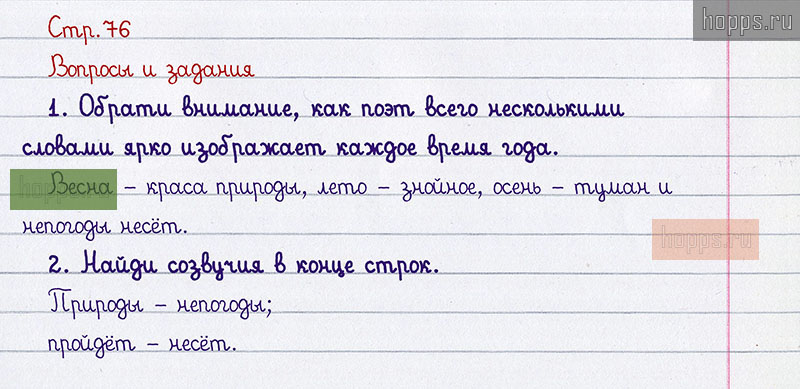 hopps.ru
Стр. 76
Вопросы и задания
1. Обрати внимание, как поэт всего несколькими
словами ярко изображает каждое время года.
Весна – краса природы, лето – знойное, осень – туман и
непогоды несёт.
hopps.ru
2. Найди созвучия в конце строк.
Природы – непогоды;
пройдёт – несёт.